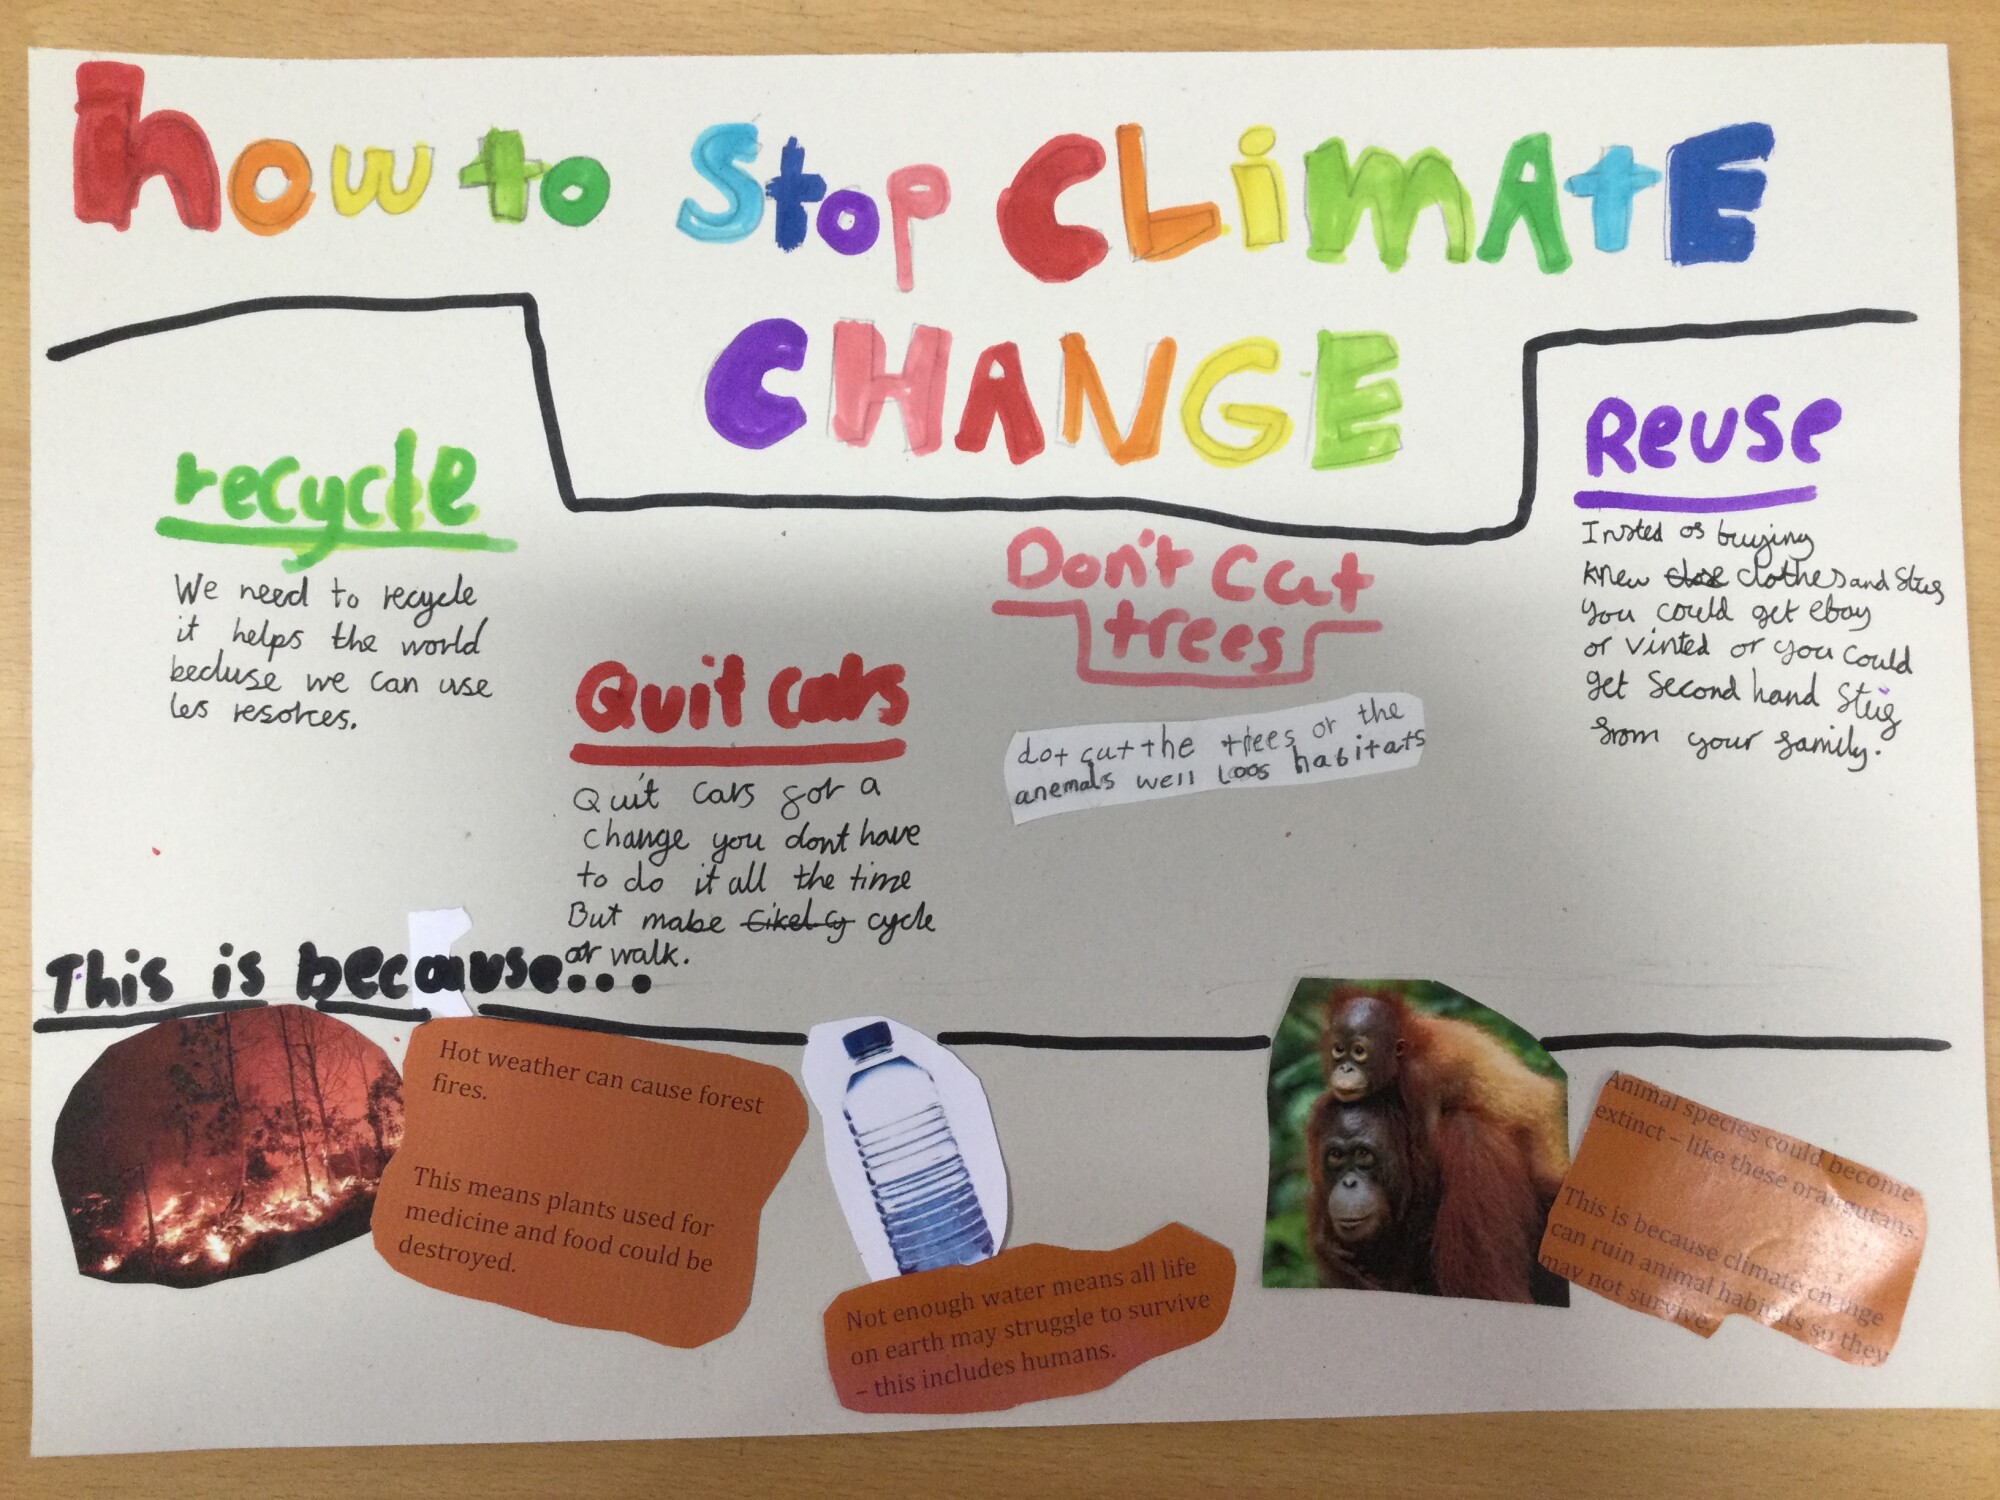 how to Stop CLiMAtE
CHANGE
recycle
We need to recycle
it helps the world
becluse we can use
les resorces.
Quit cars
Quit cars for a
change you dont have
to do it all the time
But make cycle
or walk.
Don't cut
trees
dot cut the trees or the
anemals well loos habitats
Reuse
Insted of buying
knew clothes and stuf
you could get ebay
or vinted or you could
get second hand stuf
from your family.
This is because...
Hot weather can cause forest
fires.
This means plants used for
medicine and food could be
destroyed.
Not enough water means all life
on earth may struggle to survive
– this includes humans.
Animal species could become
extinct – like these orangutans.
This is because climate change
can ruin animal habitats so they
may not survive.